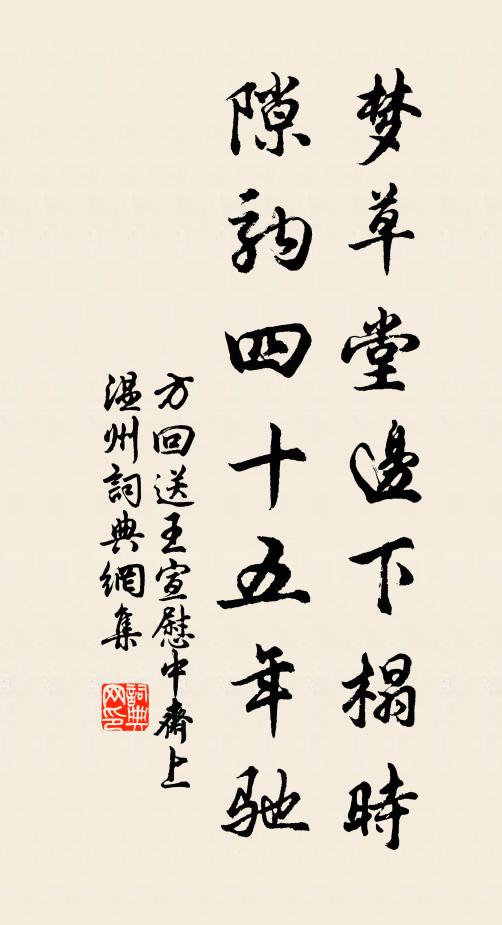 梦草堂邊下榻時
隙駒四十五年馳
方回送王宣慰中齊上
温州詞典網集
詞典网印